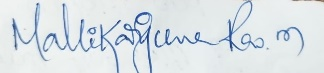 Mallikarjuna Rao. m